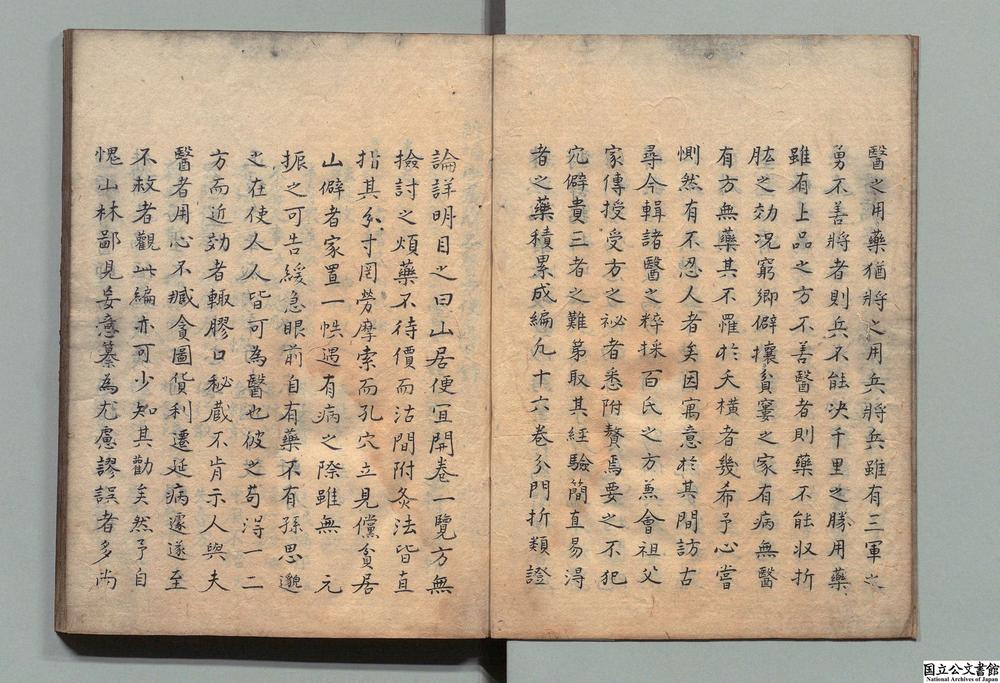 醫之用藥猶將之用兵將兵雖有三軍之
勇不善將者則兵不能决千里之勝用藥
雖有上品之方不善醫者則藥不能収折
肱之効况窮鄉僻攘貧窶之家有病無醫
有方無藥其不罹於夭橫者幾希予心嘗
惻然有不忍人者矣因寓意於其間訪古
尋今輯諸醫之粹採百氏之方兼會祖父
家傳授受方之祕者悉附贅焉要之不犯
宂僻貴三者之難第取其經驗簡直易淂
者之藥積累成編凢十六卷分門折類證
論詳明目之曰山居便宜開卷一覽方無
撿討之煩藥不待價而沽間附灸法皆直
指其分寸罔勞摩索而孔穴立見儻貧居
山僻者家置一帙遇有病之際雖無 元
振之可告緩急眼前自有藥不有孫思邈
之在使人人皆可為醫也彼之苟淂一二
方而近効者輙膠口秘蔵不肯示人與夫
醫者用心不臧貪圖貨利遷延病遽遂至
不救者觀此編亦可少知其勸矣然予自
愧山林鄙見妄意纂為尤慮謬誤者多尚
国立公文書館
National Archives of Japan